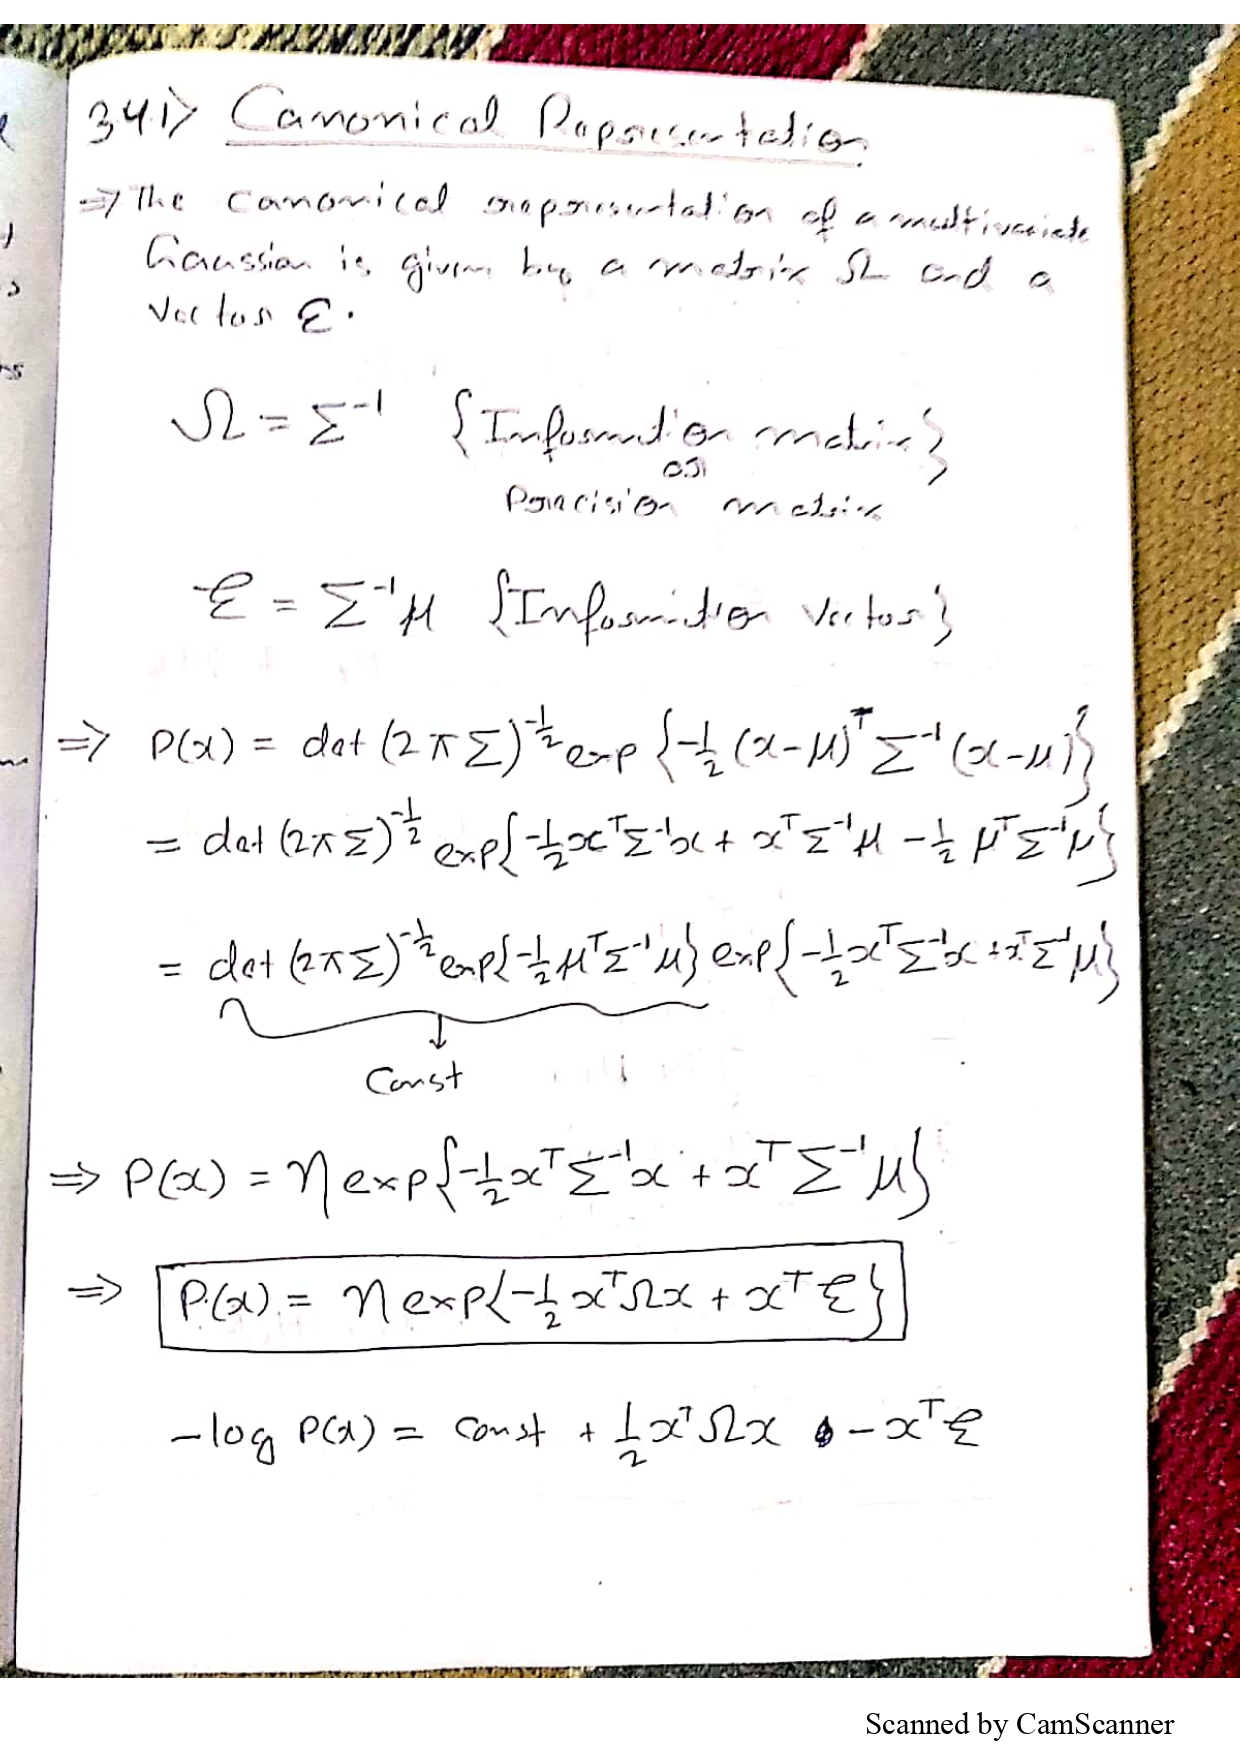 3.4.1> Canonical Representation
⇒ The canonical representation of a multivariate
Gaussian is given by a matrix Ω and a
Vector ξ.
Ω = Σ⁻¹ {Information matrix}
or
Precision matrix
ξ = Σ⁻¹μ {Information Vector}
⇒ P(x) = det (2πΣ)^{-1/2} exp {-1/2 (x-μ)ᵀ Σ⁻¹ (x-μ)}
= det (2πΣ)^{-1/2} exp{-1/2 xᵀΣ⁻¹x + xᵀΣ⁻¹μ - 1/2 μᵀΣ⁻¹μ}
= det (2πΣ)^{-1/2} exp{-1/2 μᵀΣ⁻¹μ} exp{-1/2 xᵀΣ⁻¹x + xᵀΣ⁻¹μ}
↓
Const
⇒ P(x) = η exp{-1/2 xᵀΣ⁻¹x + xᵀΣ⁻¹μ}
⇒ P(x) = η exp{-1/2 xᵀΩx + xᵀξ}
-log P(x) = Const + 1/2 xᵀΩx - xᵀξ
Scanned by CamScanner